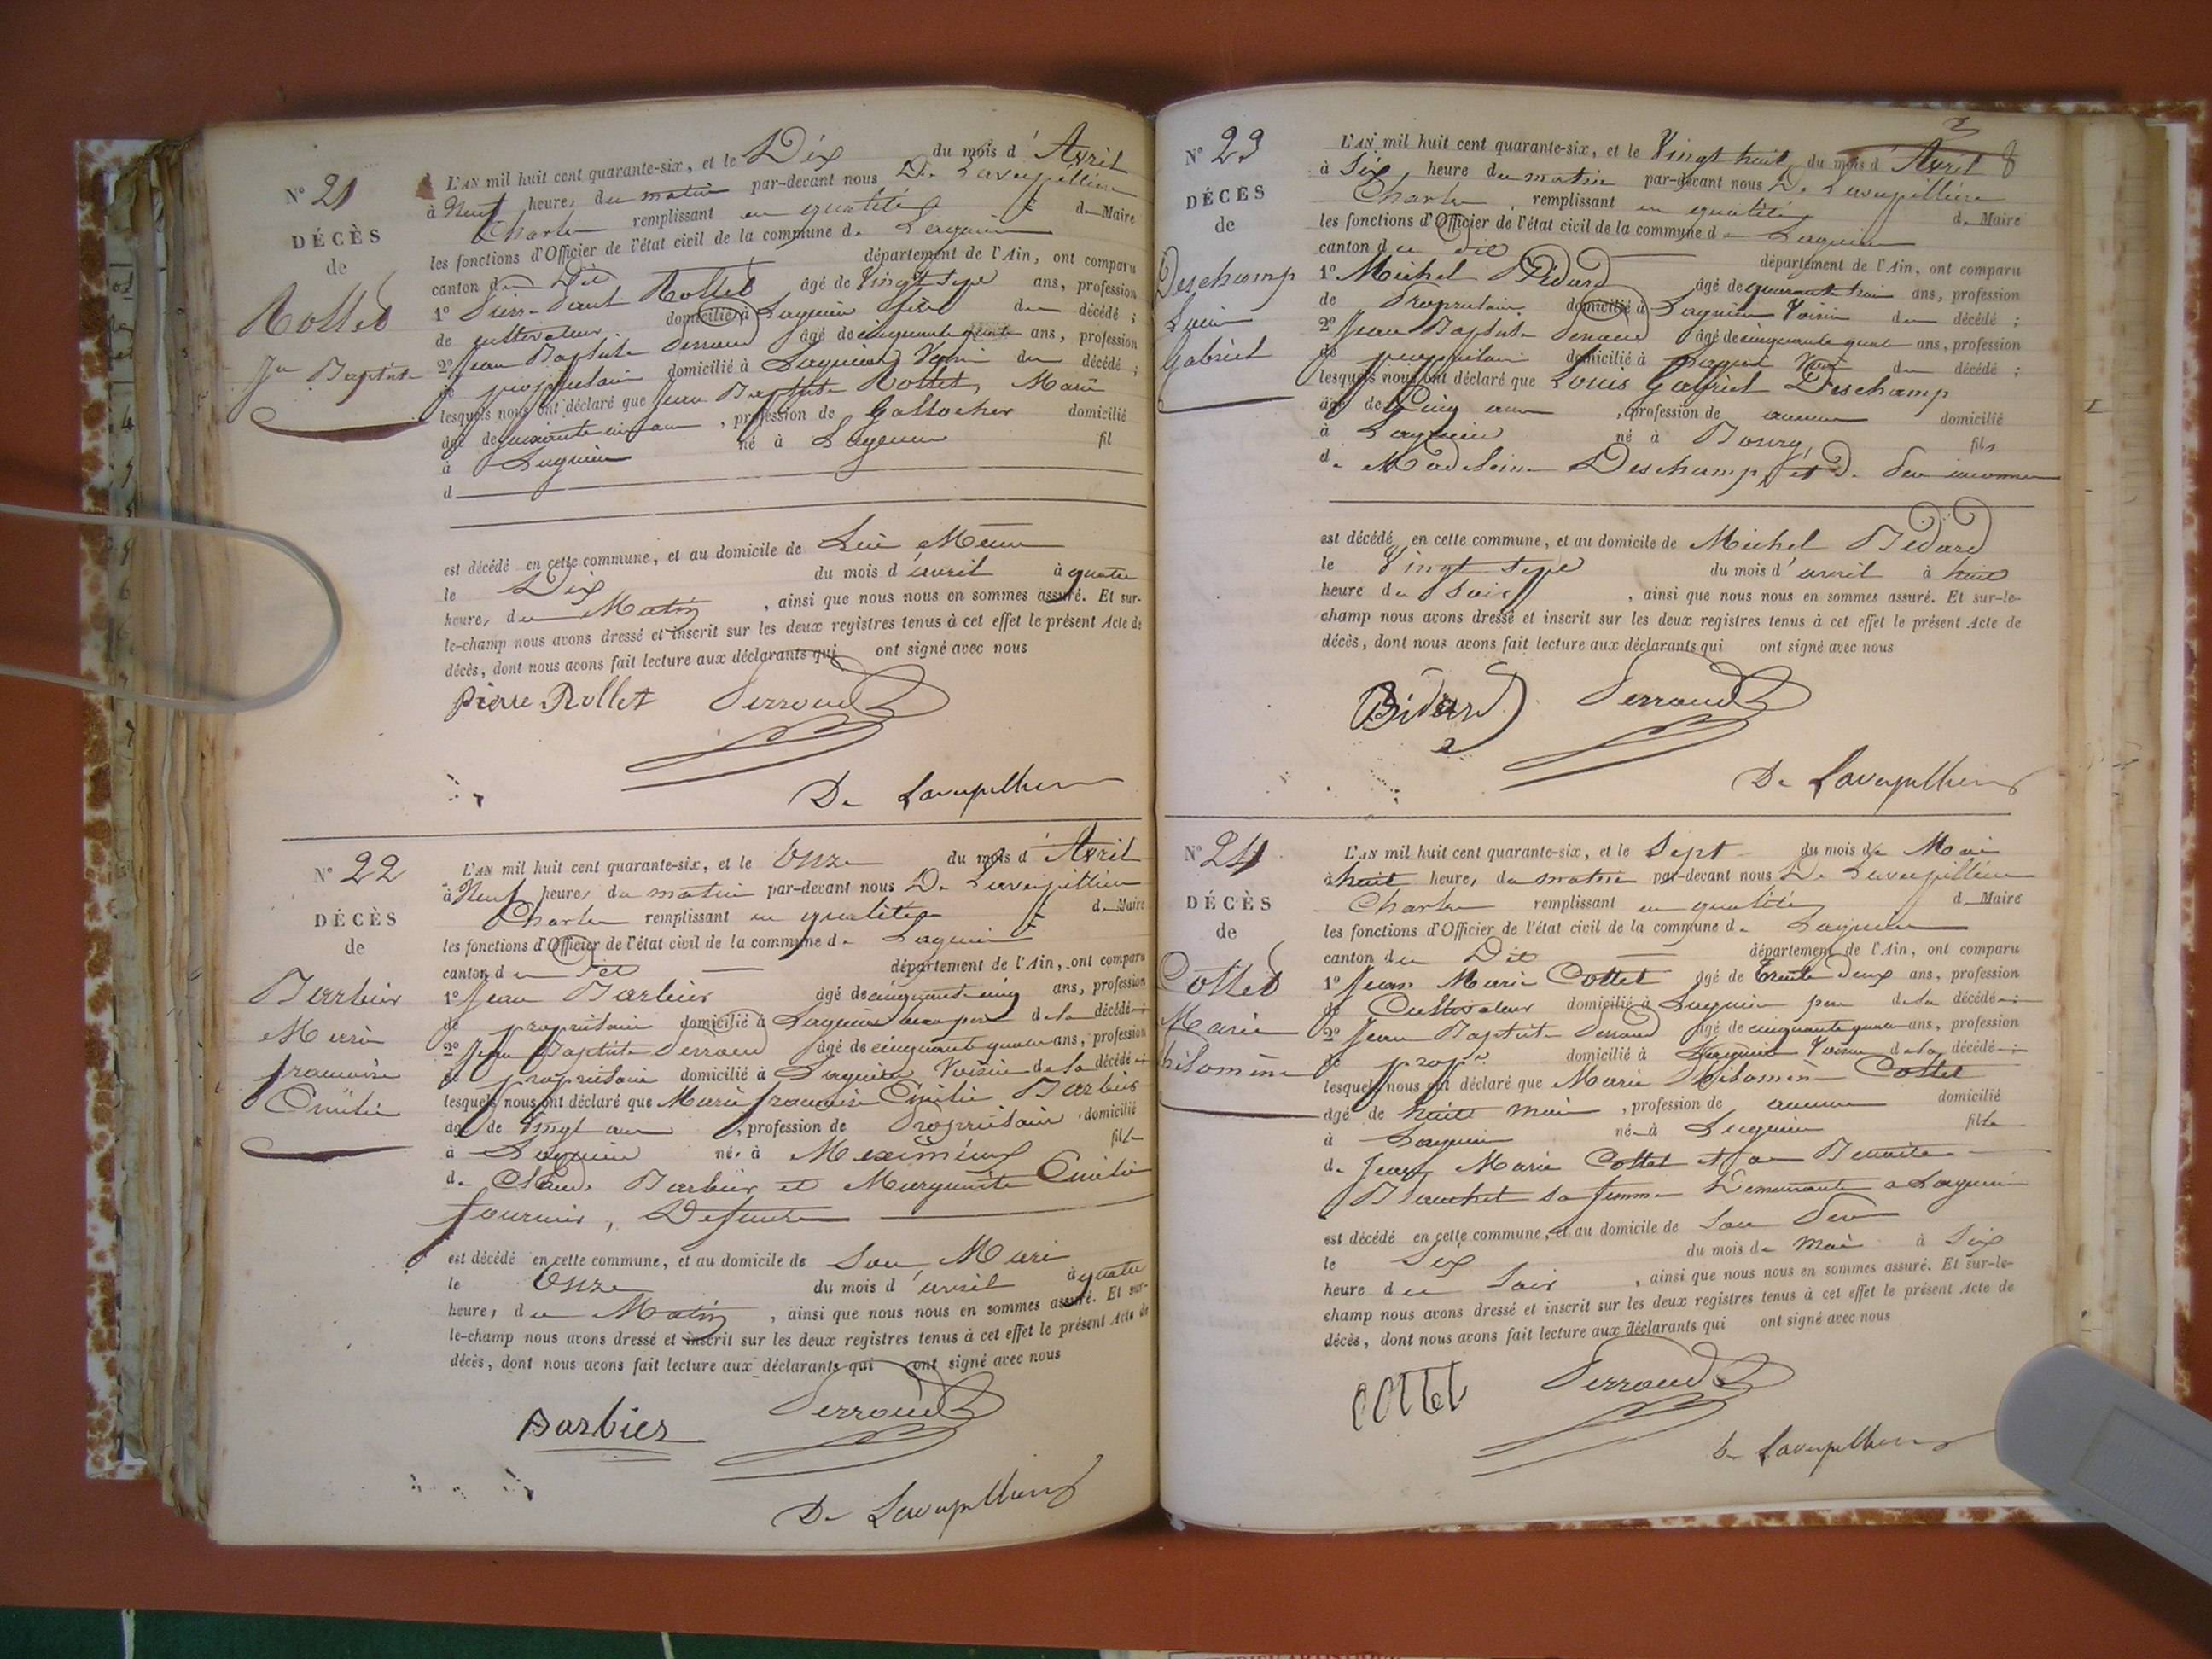 N° 21
DÉCÈS
de
Rollet
Jn Baptiste
L'AN mil huit cent quarante-six, et le Dix du mois d'Avril
à Neuf heures du matin par-devant nous De Lavaupillière
Charles remplissant en qualité de Maire
les fonctions d'Officier de l'état civil de la commune de Lagnieu
canton du Dit département de l'Ain, ont comparu
1° Pierre Rollet âgé de Vingt Sept ans, profession
de cultivateur domicilié à Lagnieu fils du décédé ;
2° Jean Baptiste Perroud âgé de cinquante quatre ans, profession
de propriétaire domicilié à Lagnieu Voisin du décédé ;
lesquels nous ont déclaré que Jean Baptiste Rollet, Marié
âgé de ans, profession de domicilié
à Lagnieu né à Lagnieu fil
d
est décédé en cette commune, et au domicile de Lui Même
le Dix du mois d'avril à quatre
heures du Matin, ainsi que nous nous en sommes assuré. Et sur-
le-champ nous avons dressé et inscrit sur les deux registres tenus à cet effet le présent Acte de
décès, dont nous avons fait lecture aux déclarants qui ont signé avec nous
Pierre Rollet Perroud
De Lavaupillière
N° 22
DÉCÈS
de
Barbier
Marie
françoise
Emilie
L'AN mil huit cent quarante-six, et le Onze du mois d'Avril
à Neuf heures du matin par-devant nous De Lavaupillière
Charles remplissant en qualité de Maire
les fonctions d'Officier de l'état civil de la commune de Lagnieu
canton du Dit département de l'Ain, ont comparu
1° Jean Barbier âgé de cinquante cinq ans, profession
de propriétaire domicilié à Lagnieu de la décédée ;
2° Jean Baptiste Perroud âgé de cinquante quatre ans, profession
de propriétaire domicilié à Lagnieu Voisin de la décédée ;
lesquels nous ont déclaré que Marie françoise Emilie Barbier
âgé de Vingt ans, profession de Propriétaire domicilié
à Lagnieu née à Meximieux fille
de Claude Barbier et Marguerite Emilie
fournier, Defunte
est décédé en cette commune, et au domicile de Son Mari
le Onze du mois d'avril à quatre
heures du Matin, ainsi que nous nous en sommes assuré. Et sur-
le-champ nous avons dressé et inscrit sur les deux registres tenus à cet effet le présent Acte de
décès, dont nous avons fait lecture aux déclarants qui ont signé avec nous
Barbier Perroud
De Lavaupillière
N° 23
DÉCÈS
de
Deschamp
Louis
Gabriel
L'AN mil huit cent quarante-six, et le Vingt huit du mois d'Avril 8
à Six heure du matin par-devant nous De Lavaupillière
Charles, remplissant en qualité de Maire
les fonctions d'Officier de l'état civil de la commune de Lagnieu
canton du dit département de l'Ain, ont comparu
1° Michel Bidard âgé de quarante trois ans, profession
de Propriétaire domicilié à Lagnieu Voisin du décédé ;
2° Jean Baptiste Perroud âgé de cinquante quatre ans, profession
de propriétaire domicilié à Lagnieu Voisin du décédé ;
lesquels nous ont déclaré que Louis Gabriel Deschamp
âgé de Cinq ans, profession de aucune domicilié
à Lagnieu né à Bourg fils
de Madeleine Deschamp, et de Père inconnu
est décédé en cette commune, et au domicile de Michel Bidard
le Vingt Sept du mois d'avril à huit
heure du Soir, ainsi que nous nous en sommes assuré. Et sur-le-
champ nous avons dressé et inscrit sur les deux registres tenus à cet effet le présent Acte de
décès, dont nous avons fait lecture aux déclarants qui ont signé avec nous
Bidard Perroud
De Lavaupillière
N° 24
DÉCÈS
de
Cottet
Marie
Philomène
L'AN mil huit cent quarante-six, et le Sept du mois de Mai
à huit heures du matin par-devant nous De Lavaupillière
Charles remplissant en qualité de Maire
les fonctions d'Officier de l'état civil de la commune de Lagnieu
canton du Dit département de l'Ain, ont comparu
1° Jean Marie Cottet âgé de Trente Deux ans, profession
de Cultivateur domicilié à Lagnieu père de la décédée ;
2° Jean Baptiste Perroud âgé de cinquante quatre ans, profession
de propre domicilié à Lagnieu Voisin de la décédée ;
lesquels nous ont déclaré que Marie Philomène Cottet
âgé de huit mois, profession de aucune domicilié
à Lagnieu née à Lagnieu fille
de Jean Marie Cottet et de Benoite
Blanchet sa femme Demeurante à Lagnieu
est décédé en cette commune, et au domicile de Son Père
le Six du mois de Mai à Six
heure du Soir, ainsi que nous nous en sommes assuré. Et sur-le-
champ nous avons dressé et inscrit sur les deux registres tenus à cet effet le présent Acte de
décès, dont nous avons fait lecture aux déclarants qui ont signé avec nous
Cottet Perroud
De Lavaupillière